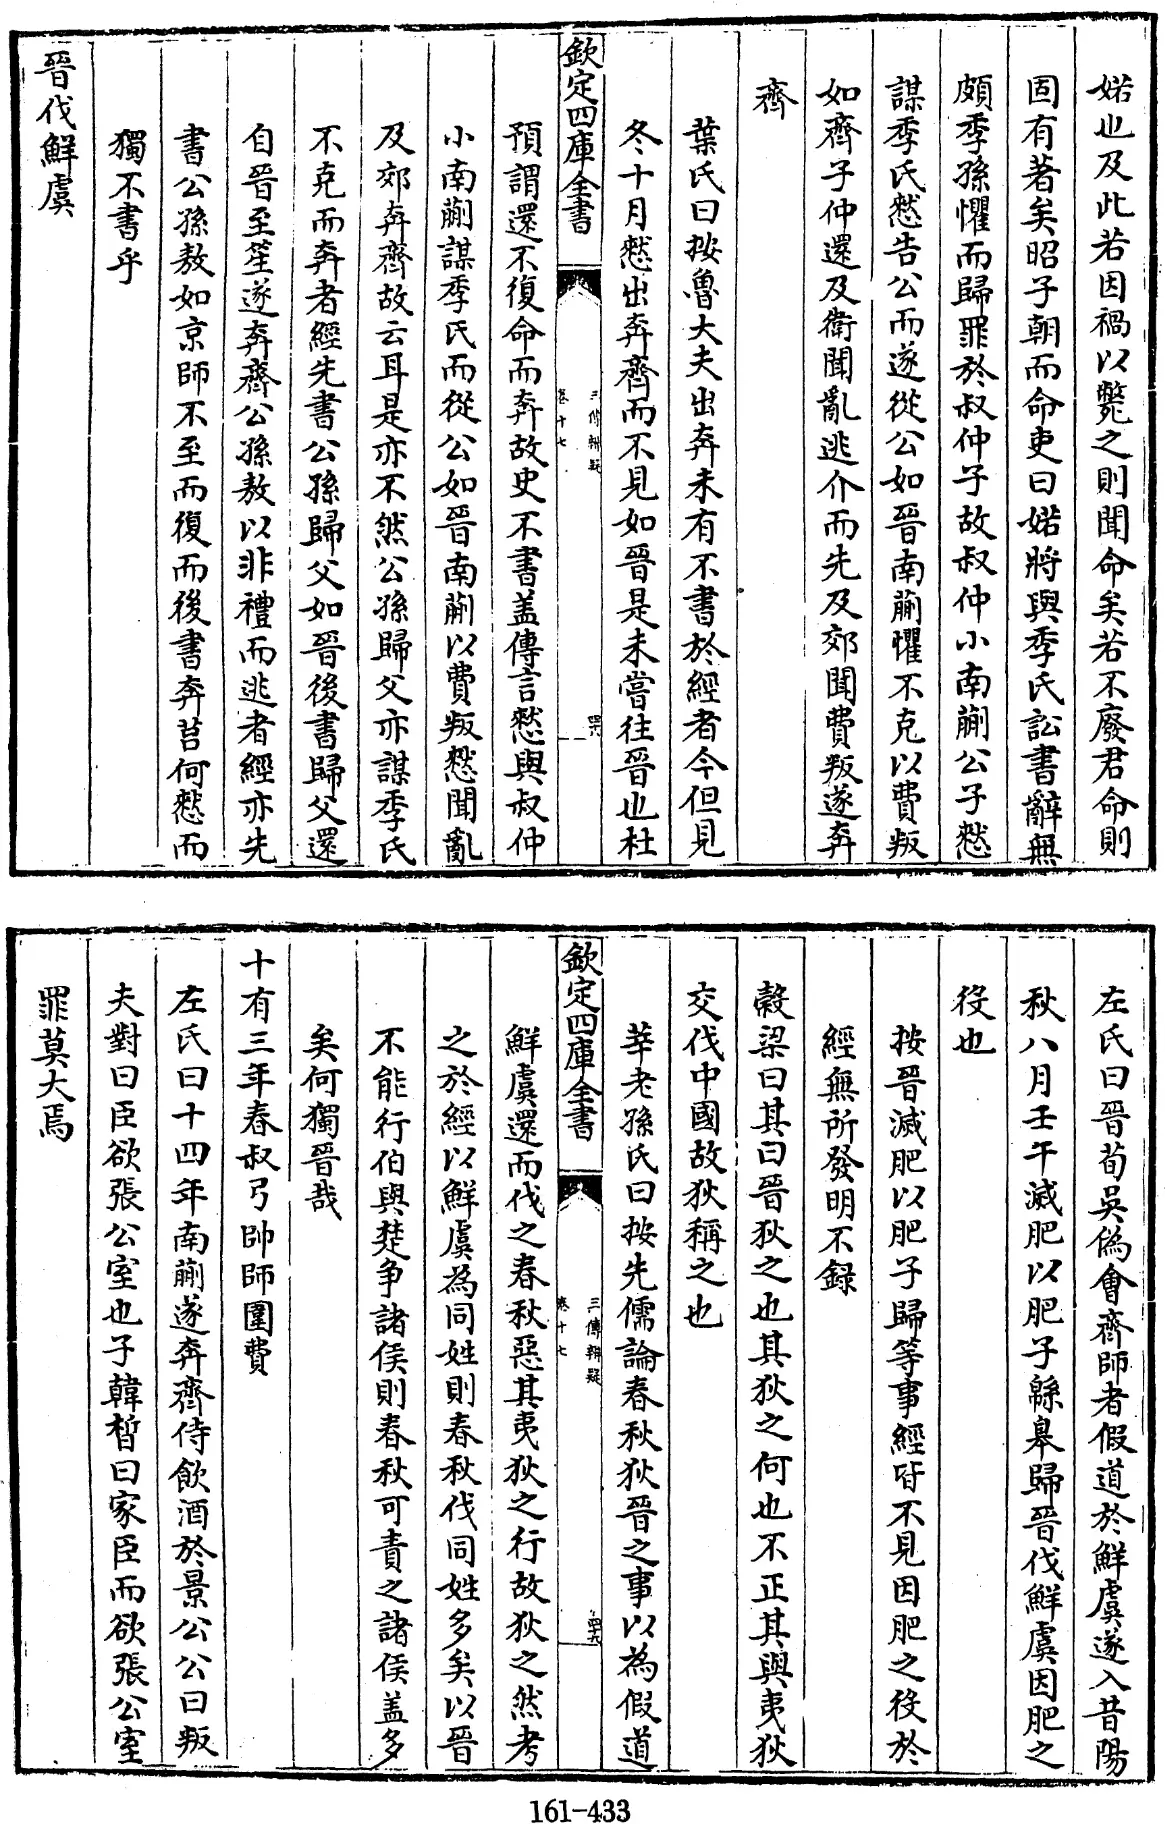 婼也及此若因禍以斃之則聞命矣若不廢君命則
固有著矣昭子朝而命吏曰婼將與季氏訟書辭無
頗季孫懼而歸罪於叔仲子故叔仲小南蒯公子憖
謀季氏憖告公而遂從公如晉南蒯懼不克以費叛
如齊子仲還及衛聞亂逃介而先及郊聞費叛遂奔
齊
葉氏曰按魯大夫出奔未有不書於經者今但見
冬十月憖出奔齊而不見如晉是未嘗往晉也杜
欽定四庫全書
三傳辨疑
卷十七
罕
預謂還不復命而奔故史不書盖傳言憖與叔仲
小南蒯謀季氏而從公如晉南蒯以費叛憖聞亂
及郊奔齊故云耳是亦不然公孫歸父亦謀季氏
不克而奔者經先書公孫歸父如晉後書歸父還
自晉至笙遂奔齊公孫敖以非禮而逃者經亦先
書公孫敖如京師不至而復而後書奔莒何憖而
獨不書乎
晉伐鮮虞
左氏曰晉荀吳偽會齊師者假道於鮮虞遂入昔陽
秋八月壬午滅肥以肥子緜皋歸晉伐鮮虞因肥之
役也
按晉滅肥以肥子歸等事經皆不見因肥之役於
經無所發明不録
穀梁曰其曰晉狄之也其狄之何也不正其與夷狄
交伐中國故狄稱之也
莘老孫氏曰按先儒論春秋狄晉之事以為假道
欽定四庫全書
三傳辨疑
卷十七
罕九
鮮虞還而伐之春秋惡其夷狄之行故狄之然考
之於經以鮮虞為同姓則春秋伐同姓多矣以晉
不能行伯與楚争諸侯則春秋可責之諸侯盖多
矣何獨晉哉
十有三年春叔弓帥師圍費
左氏曰十四年南蒯遂奔齊侍飲酒於景公公曰叛
夫對曰臣欲張公室也子韓皙曰家臣而欲張公室
罪莫大焉
161-433